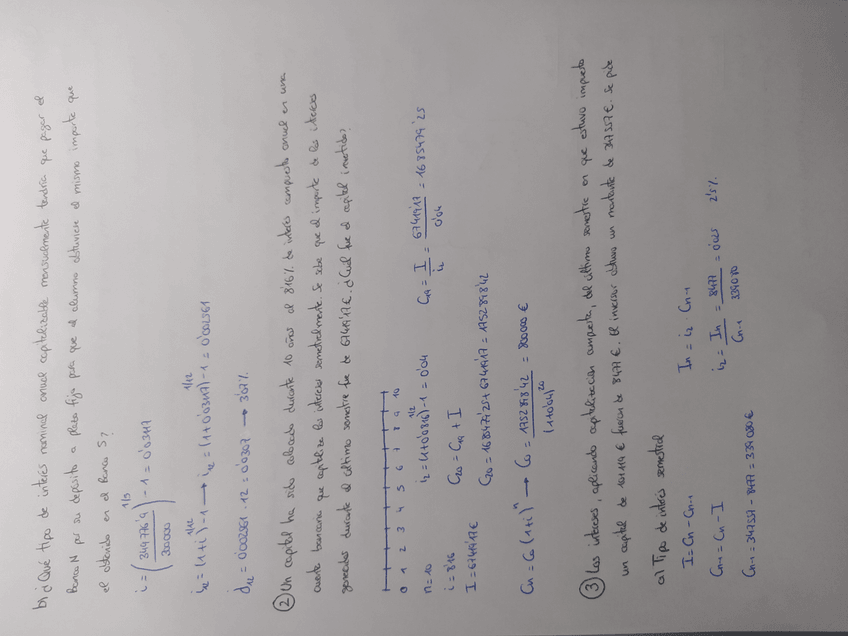 b) ¿Qué tipo de interés nominal anual capitalizable mensualmente tendría que pagar el
Banco N por su depósito a plazo fijo para que el alumno obtuviese el mismo importe que
el obtenido en el Banco S?
i = (349776'9 / 300000)^1/5 - 1 = 0'03117
i12 = (1+i)^1/12 - 1 → i12 = (1+0'03117)^1/12 - 1 = 0'002561
J12 = 0'002561 · 12 = 0'0307 → 3'07%
② Un capital ha sido colocado durante 10 años al 8'16% de interés compuesto anual en una
cuenta bancaria que capitaliza los intereses semestralmente. Se sabe que el importe de los intereses
generados durante el último semestre fue de 67419'17 €. ¿Cuál fue el capital invertido?
0 1 2 3 4 5 6 7 8 9 10
n = 10 i2 = (1+0'0816)^1/2 - 1 = 0'04 C19 = I / i2 = 67419'17 / 0'04 = 1685479'25
i = 8'16 C20 = C19 + I
I = 67419'17 € C20 = 1685479'25 + 67419'17 = 1752898'42
Cn = C0 (1+i)^n → C0 = 1752898'42 / (1+0'04)^20 = 800000 €
③ Los intereses, aplicando capitalización compuesta, del último semestre en que estuvo impuesto
un capital de 101119 € fueron de 8477 €. El inversor obtuvo un montante de 347557 €. Se pide
a) Tipo de interés semestral
I = Cn - Cn-1 In = i2 · Cn-1
Cn-1 = Cn - I i2 = In / Cn-1 = 8477 / 339080 = 0'025 2'5%
Cn-1 = 347557 - 8477 = 339080 €